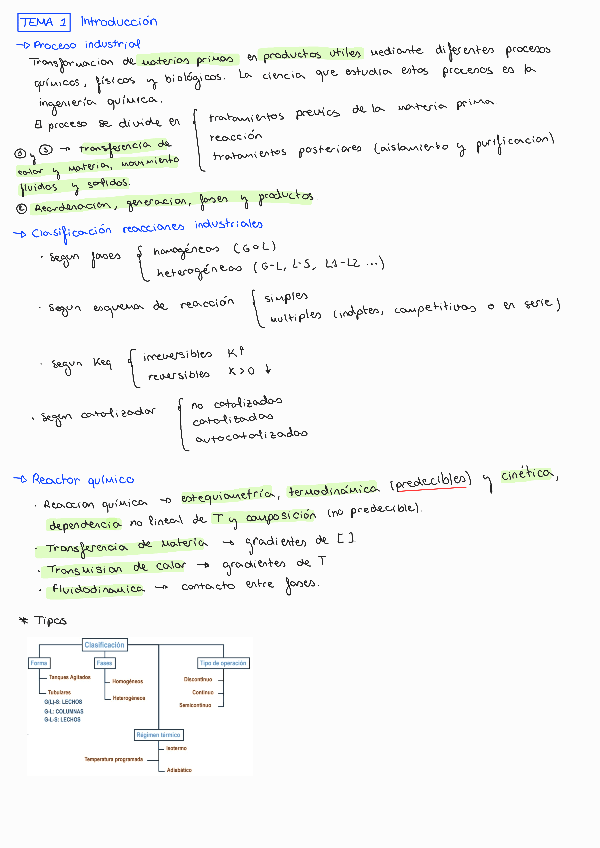 TEMA 1 Introducción
→ Proceso industrial
Transformacion de materias primas en productos utiles mediante diferentes procesos
químicos, físicos y biológicos. La ciencia que estudia estos procesos es la
ingeniería química.
El proceso se divide en { tratamientos previos de la materia prima.
reacción
tratamientos posteriores (aislamiento y purificacion)
① y ③ → transferencia de
calor y materia, movimiento
fluidos y solidos.
② Reordenación, generacion, fases y productos
→ Clasificación reacciones industriales
· Segun fases { homogéneas (G o L)
heterogéneas (G-L, L-S, L1-L2 ...)
· Segun esquema de reacción { simples
multiples (indptes, competitivas o en serie)
· Segun Keq { irreversibles K↑
reversibles K>0 ↓
· Segun catalizador { no catalizadas
catalizadas
autocatalizadas
→ Reactor químico
· Reaccion química → estequiometría, termodinámica (predecibles) y cinética,
dependencia no lineal de T y composición (no predecible).
· Transferencia de materia → gradientes de [ ]
· Transmision de calor → gradientes de T
· fluidodinamica → contacto entre fases.
* Tipos
Clasificación
Forma Fases Tipo de operación
Tanques Agitados
Tubulares
G(L)-S: LECHOS
G-L: COLUMNAS
G-L-S: LECHOS
Homogéneos
Heterogéneos
Discontinuo
Continuo
Semicontinuo
Régimen térmico
Isotermo
Temperatura programada
Adiabático